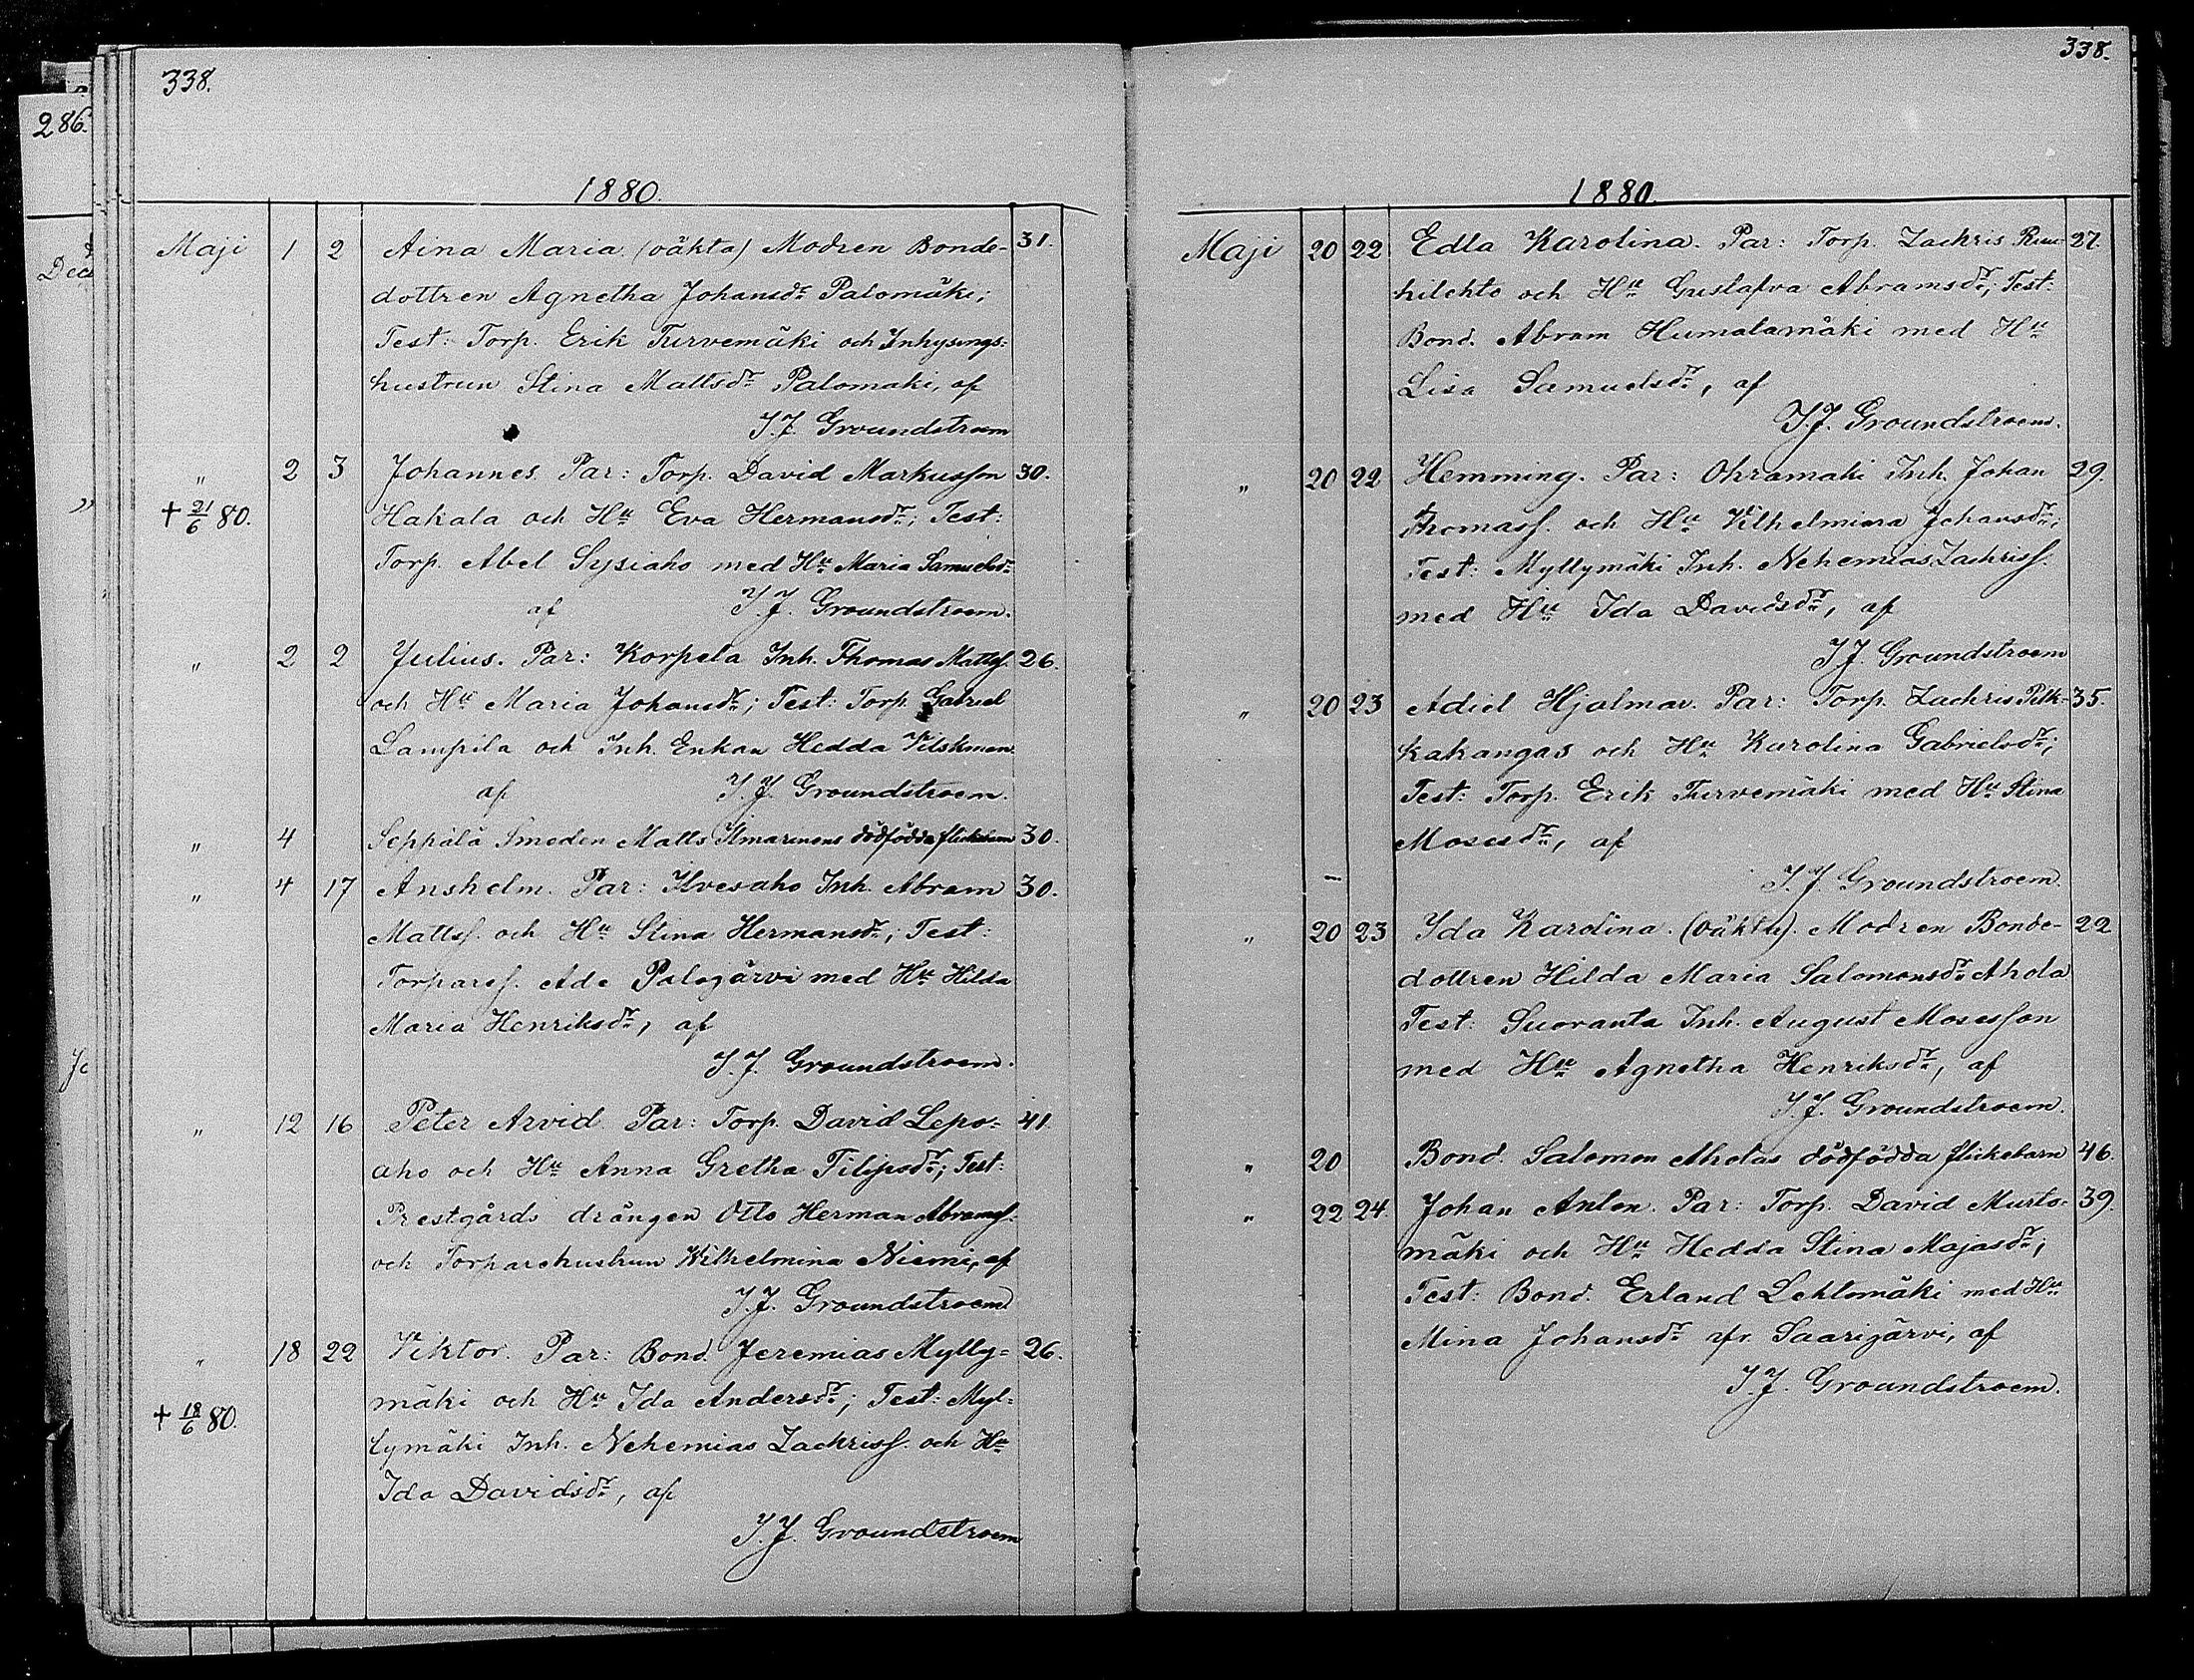 338.
286.
1880.
Maji 1 2 Aina Maria (oäkta) Modren Bonde- 31.
dottren Agnetha Johansdr Palomäki;
Test: Torp. Erik Turvemäki och Inhysings-
hustrun Stina Mattsdr Palomaki, af
I. J. Groundstroem
" 2 3 Johannes. Par: Torp. David Markusson 30.
+ 21/6 80. Hakala och Hu Eva Hermansdr; Test:
Torp. Abel Sysiaho med Hu Maria Samuelsdr
af I. J. Groundstroem.
" 2 2 Julius. Par: Korpela Inh. Thomas Mattss. 26.
och Hu Maria Johansdr; Test: Torp. Gabriel
Lampila och Inh. Enkan Hedda Vilskman
af I. J. Groundstroem.
" 4 Seppälä Smeden Matts Ilmarinens dödfödda flickebarn 30.
" 4 17 Anshelm. Par: Ilvesaho Inh. Abram 30.
Mattss. och Hu Stina Hermansdr; Test:
Torpares. Ade Palojärvi med Hu Hilda
Maria Henriksdr, af
I. J. Groundstroem.
" 12 16 Peter Arvid. Par: Torp. David Lepo- 41.
aho och Hu Anna Gretha Filipsdr; Test:
Prestgårds drängen Otto Herman Abramss.
och Torparehustrun Wilhelmina Niemi, af
I. J. Groundstroem
" 18 22 Viktor. Par: Bond. Jeremias Mylly- 26.
+ 18/6 80. mäki och Hu Ida Andersdr; Test: Myl-
lymäki Inh. Nehemias Zackriss. och Hu
Ida Davidsdr, af
I. J. Groundstroem
338.
1880.
Maji 20 22 Edla Karolina. Par: Torp. Zackris Ruu- 27.
hilehto och Hu Gustafva Abramsdr; Test:
Bond. Abram Humalamäki med Hu
Lisa Samuelsdr, af
I. J. Groundstroem.
" 20 22 Hemming. Par: Ohramaki Inh. Johan 29.
Thomass. och Hu Vilhelmina Johansdr;
Test: Myllymäki Inh. Nehemias Zackriss.
med Hu Ida Davidsdr, af
I. J. Groundstroem
" 20 23 Adiel Hjalmar. Par: Torp. Zackris Pitk- 35.
kakangas och Hu Karolina Gabrielsdr;
Test: Torp. Erik Turvemäki med Hu Stina
Mosesdr, af
I. J. Groundstroem.
" 20 23 Ida Karolina. (oäkta). Modren Bonde- 22
dottren Hilda Maria Salomonsdr Ahola
Test: Suoranta Inh. August Mosesson
med Hu Agnetha Henriksdr, af
I. J. Groundstroem.
" 20 Bond. Salomon Aholas dödfödda flickebarn 46.
" 22 24 Johan Anton. Par: Torp. David Murto- 39.
mäki och Hu Hedda Stina Majasdr;
Test: Bond. Erland Lehtomäki med Hu
Mina Johansdr ifr. Saarijärvi, af
I. J. Groundstroem.